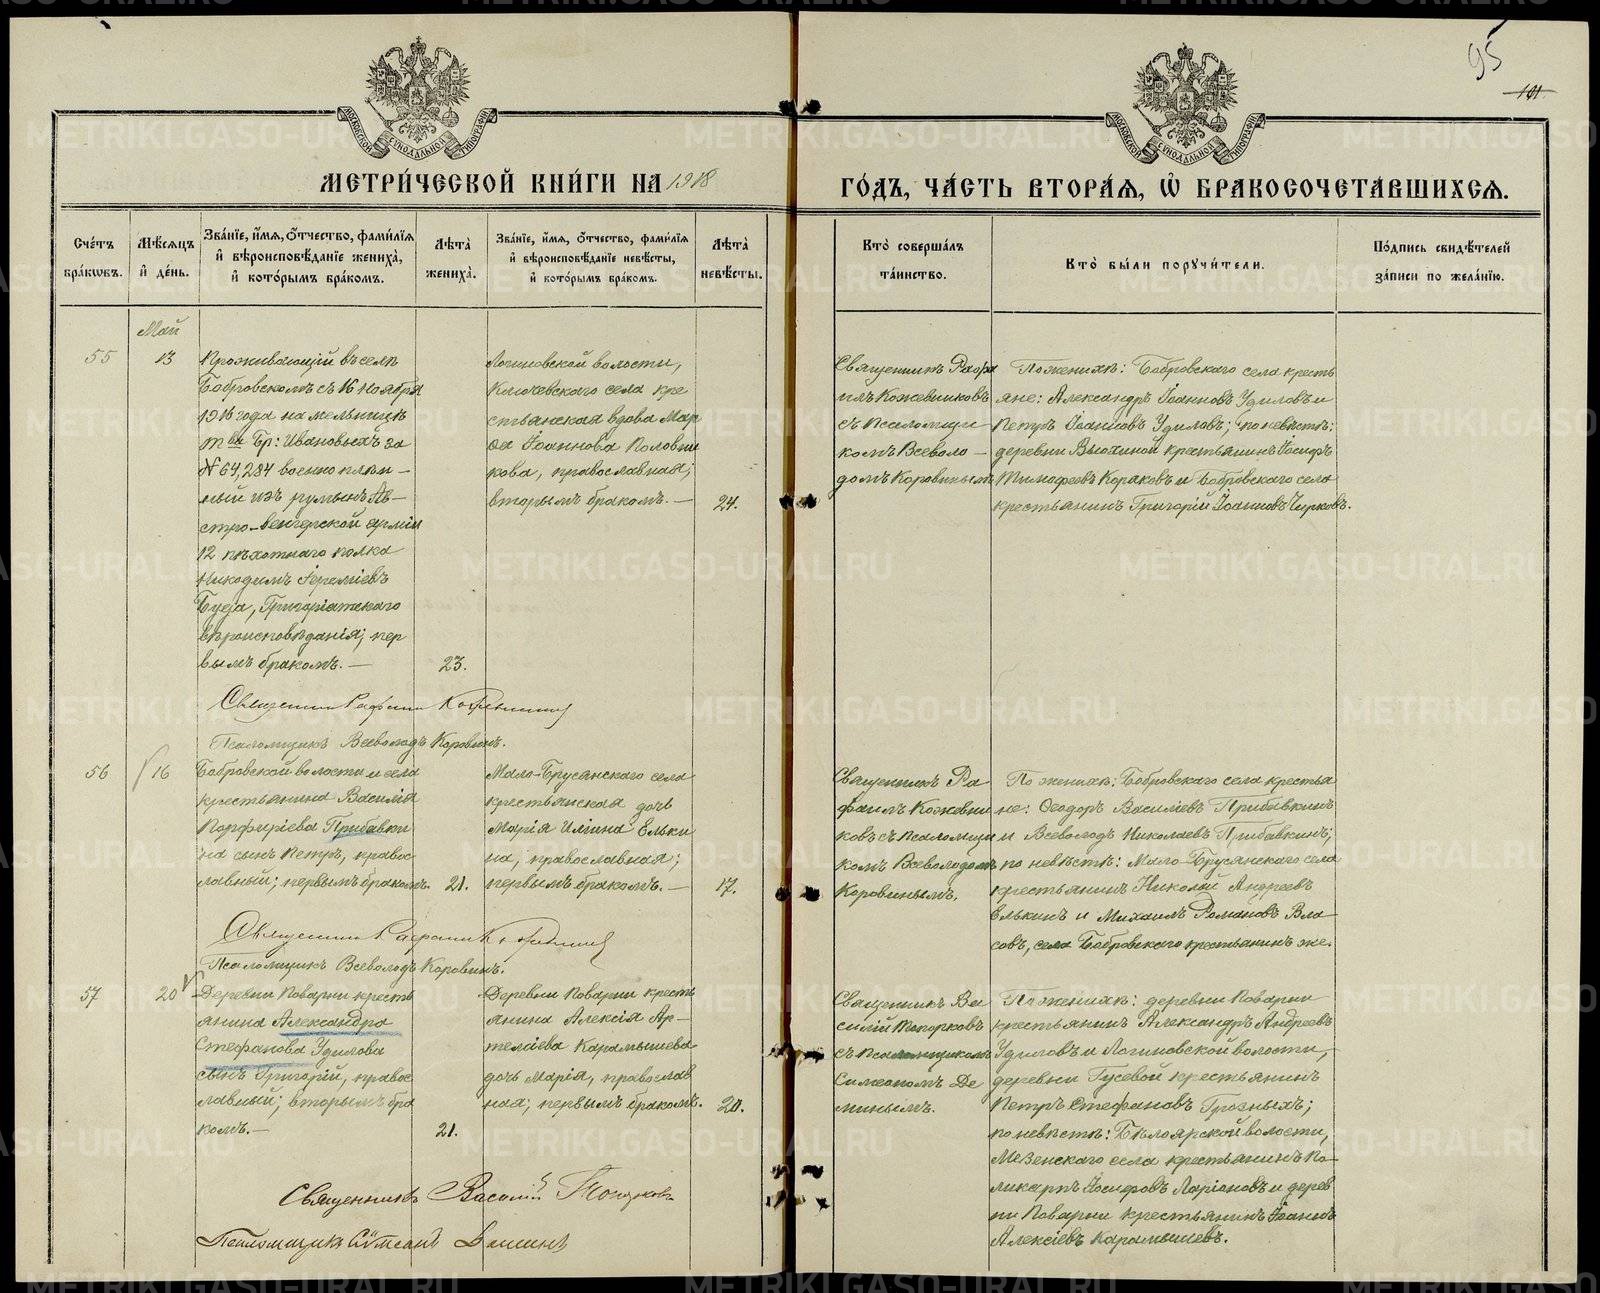 95
101
МОСКОВСКОЙ СѴНОДАЛЬНОЙ ТИПОГРАФІИ
МОСКОВСКОЙ СѴНОДАЛЬНОЙ ТИПОГРАФІИ
МЕТРИ́ЧЕСКОЙ КНИ́ГИ НА 1918
ГО́ДЪ, ЧА́СТЬ ВТОРА́Я, Ѡ҆ БРАКОСОЧЕТА́ВШИХСЯ.
Сче́тъ
бра́кѡвъ.
Мѣ́сяцъ
и҆ де́нь.
Зва́нїе, и҆́мя, ѻ҆́тчество, фами́лїя
и҆ вѣроисповѣ́данїе жениха̀,
и҆ кото́рымъ бра́комъ.
Лѣ́та
жениха̀.
Зва́нїе, и҆́мя, ѻ҆́тчество, фами́лїя
и҆ вѣроисповѣ́данїе невѣ́сты,
и҆ кото́рымъ бра́комъ.
Лѣ́та
невѣ́сты.
Кто̀ соверша́лъ
та́инство.
Кто̀ бы́ли поручи́тели.
По́дпись свидѣ́телей
за́писи по жела́нїю.
Май
55
13
Проживающій въ селѣ
Бобровскомъ съ 16 Ноября
1916 года на мельницѣ
т-ва Бр: Ивановыхъ за
№ 64,284 военно плѣн-
ный изъ румынъ, Ав-
стро-венгерской арміи
12 пѣхотнаго полка
Никодимъ Іереміевъ
Буда, Григоріатскаго
вѣроисповѣданія; пер
вымъ бракомъ. —
23.
Логиновской волости,
Ключевскаго села кре
стьянская вдова Мар
ѳа Іоаннова Половни
кова, православная;
вторымъ бракомъ. —
24.
Священникъ Рафа
илъ Кожевниковъ
съ псаломщи
комъ Всеволо-
домъ Коровинымъ
По женихѣ: Бобровскаго села кресть
яне: Александръ Іоанновъ Удиловъ и
Петръ Іоанновъ Удиловъ; по невѣстѣ:
деревни Высохиной крестьянинъ Іосифъ
Тимофеевъ Кораковъ и Бобровскаго села
крестьянинъ Григорій Іоанновъ Чирковъ.
Священникъ Рафаилъ Кожевниковъ
Псаломщикъ Всеволодъ Коровинъ.
56
16
Бобровской волости и села
крестьянина Василія
Порфиріева Прибавки
на сынъ Петръ, правос
лавный; первымъ бракомъ.
21.
Мало-Брусянскаго села
крестьянская дочь
Марія Илiина Елькi
на, православная;
первымъ бракомъ. —
17.
Священникъ Ра
фаилъ Кожевни
ковъ съ псаломщи
комъ Всеволодомъ
Коровинымъ.
По женихѣ: Бобровскаго села крестья
не: Ѳеодоръ Василіевъ Прибавкинъ
и Всеволодъ Николаевъ Прибавкинъ;
по невѣстѣ: Мало-Брусянскаго села
крестьянинъ Николай Андреевъ
Елькинъ и Михаилъ Романовъ Вла
совъ, села Бобровскаго крестьянинъ же.
Священникъ Рафаилъ Кожевниковъ
Псаломщикъ Всеволодъ Коровинъ.
57
20
Деревни Поварни кресть
янина Александра
Стефанова Удилова
сынъ Григорій, правос
лавный; вторымъ бра
комъ. —
21.
Деревни Поварни кресть
янина Алексія Ар-
темiева Карамышева
дочь Марія, православ
ная; первымъ бракомъ.
20.
Священникъ Ва
силій Топорковъ
съ псаломщикомъ
Симеономъ Де
минымъ.
По женихѣ: деревни Поварни
крестьянинъ Александръ Андреевъ
Удиловъ и Логиновской волости,
деревни Гусевой крестьянинъ
Петръ Стефановъ Грозныхъ;
по невѣстѣ: Бѣлоярской волости,
Мезенскаго села крестьянинъ По-
ликарпъ Іосифовъ Ларіоновъ и дерев
ни Поварни крестьянинъ Іоаннъ
Алексіевъ Карамышевъ.
Священникъ Василій Топорковъ
Псаломщикъ Сѵмеонъ Деминъ